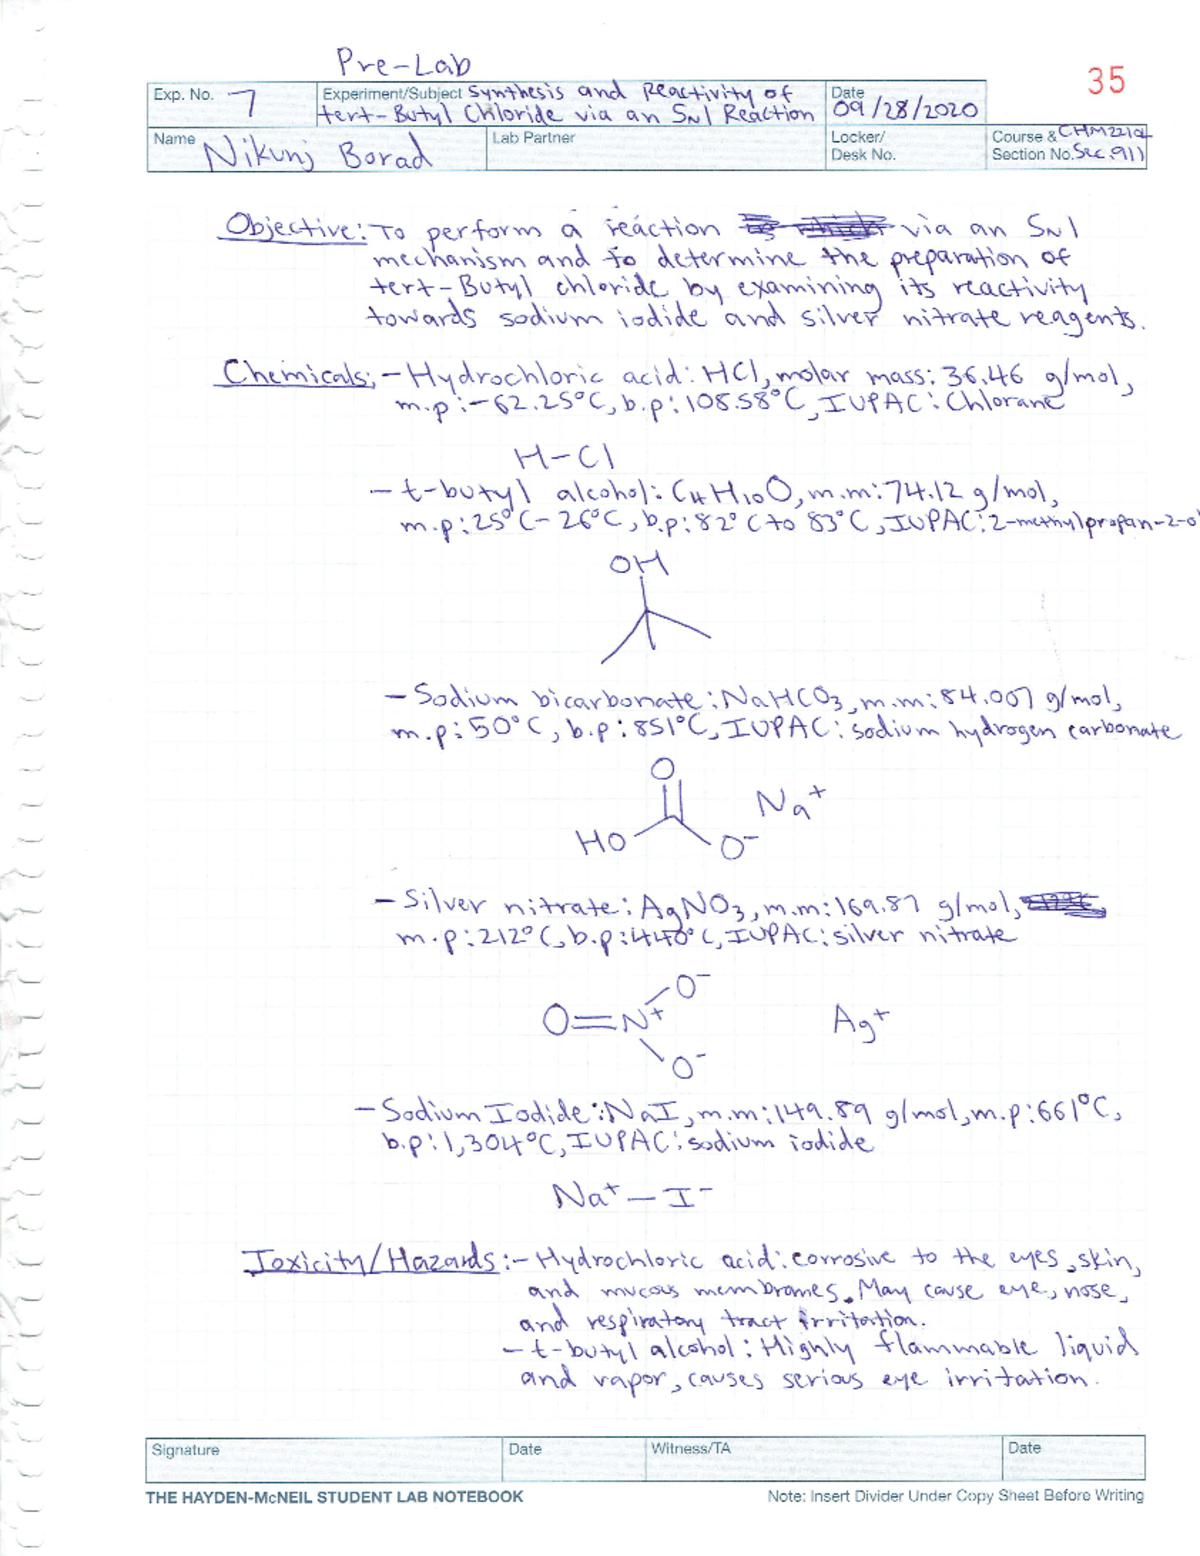 Pre-Lab
35
Exp. No. 7
Experiment/Subject Synthesis and Reactivity of
tert-Butyl Chloride via an SN1 Reaction
Date 09/28/2020
Name Nikunj Borad
Lab Partner
Locker/
Desk No.
Course & CHM2210L
Section No. Sec.911
Objective: To perform a reaction via an SN1
mechanism and to determine the preparation of
tert-Butyl chloride by examining its reactivity
towards sodium iodide and silver nitrate reagents.
Chemicals: - Hydrochloric acid: HCl, molar mass: 36.46 g/mol,
m.p: -62.25°C, b.p: 108.58°C, IUPAC: Chlorane
H-Cl
- t-butyl alcohol: C4H10O, m.m: 74.12 g/mol,
m.p: 25°C - 26°C, b.p: 82°C to 83°C, IUPAC: 2-methylpropan-2-ol
OH
- Sodium bicarbonate: NaHCO3, m.m: 84.007 g/mol,
m.p: 50°C, b.p: 851°C, IUPAC: sodium hydrogen carbonate
O
Na+
HO
O-
- Silver nitrate: AgNO3, m.m: 169.87 g/mol,
m.p: 212°C, b.p: 440°C, IUPAC: silver nitrate
O-
O=N+
Ag+
O-
- Sodium Iodide: NaI, m.m: 149.89 g/mol, m.p: 661°C,
b.p: 1,304°C, IUPAC: sodium iodide
Na+ - I-
Toxicity/Hazards: - Hydrochloric acid: corrosive to the eyes, skin,
and mucous membranes. May cause eye, nose,
and respiratory tract irritation.
- t-butyl alcohol: Highly flammable liquid
and vapor, causes serious eye irritation.
Signature
Date
Witness/TA
Date
THE HAYDEN-McNEIL STUDENT LAB NOTEBOOK
Note: Insert Divider Under Copy Sheet Before Writing